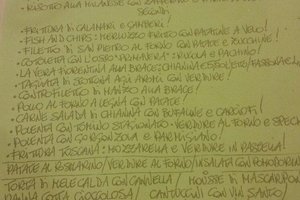 • RISOTTO ALLA MILANESE CON ZAFFERANO E
SECONDI
• FRITTURA DI CALAMARI E GAMBERI!
• FISH AND CHIPS: MERLUZZO FRITTO CON PATATE A VELO!
• FILETTO DI SAN PIETRO AL FORNO CON PATATE E ZUCCHINE!
• COTOLETTA CON L'OSSO "PRIMAVERA": RUCOLA E PACHINO!
• LA VERA FIORENTINA ALLA BRACE: CHIANINA E
• TAGLIATA DI SCOTTONA AGLI AROMI CON VERDURE!
• CONTROFILETTO DI MANZO ALLA BRACE!
• POLLO AL FORNO A LEGNA CON PATATE!
• CARNE SALADA DI CHIANINA CON BUFALINE E CARCIOFI!
• POLENTA CON TOMINO STAGIONATO: VERDURE AL FORNO E SPECK
• POLENTA CON GORGONZOLA E PARMIGIANO!
• FRITTURA TOSCANA: MOZZARELLA E VERDURE IN PASTELLA!
PATATE AL ROSMARINO/VERDURE AL FORNO/INSALATA CON POMODORINI
TORTA DI MELE CALDA CON CANNELLA/ MOUSSE DI MASCARPONE
PANNA COTTA GOLOSA/ CANTUCCINI CON VIN SANTO/